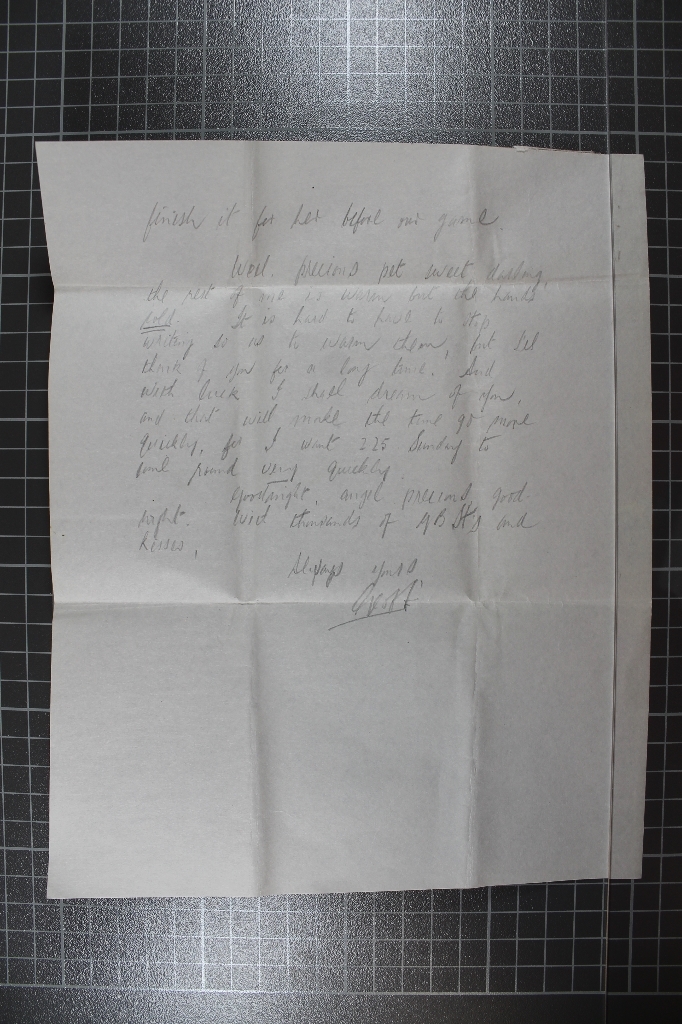 finish it for her before our game.
Well, precious pet sweet darling,
the rest of me is warm but the hands
cold. It is hard to have to stop
writing so as to warm them, but I'll
think of you for a long time. And
with luck I shall dream of you,
and that will make the time go more
quickly, for I want 225 Sunday to
come round very quickly.
Goodnight, angel precious, good
night. With thousands of and
kisses,
Always yours